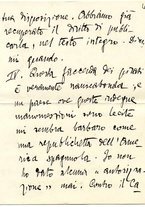 tua disposizione. Abbiamo già
recuperato il diritto di pubbli-
carla, nel testo integro. Scri-
mi quando.
IV. Questa faccenda dei giornali
è veramente nauseabonda, e
mi pare che queste indegne
manomissioni sono lecite
mi sembra barbaro come
una repubblichetta dell'Ame-
rica spagnuola. Io non
ho dato alcuna "autoriz-
zazione" mai. Contro il Ca